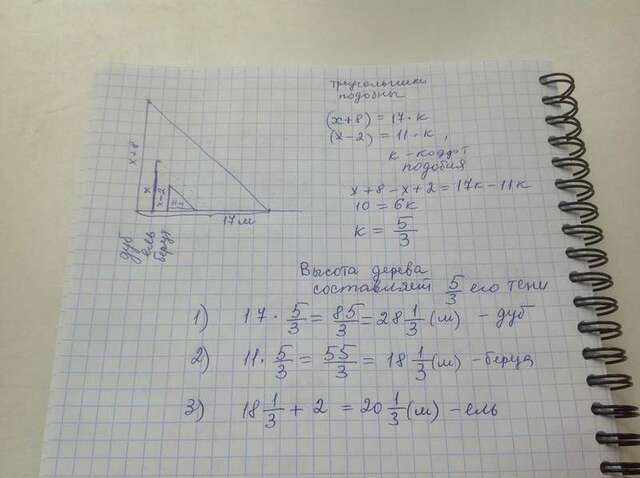 треугольники
подобны
(x+8) = 17·к
(x-2) = 11·к,
к - коэфт
подобия
x+8-x+2 = 17к-11к
10 = 6к
к = 5/3
x+8
x
x-2
17м
дуб
ель
берёза
Высота дерева
составляет 5/3 его тени
1) 17 · 5/3 = 85/3 = 28 1/3 (м) - дуб
2) 11 · 5/3 = 55/3 = 18 1/3 (м) - береза
3) 18 1/3 + 2 = 20 1/3 (м) - ель